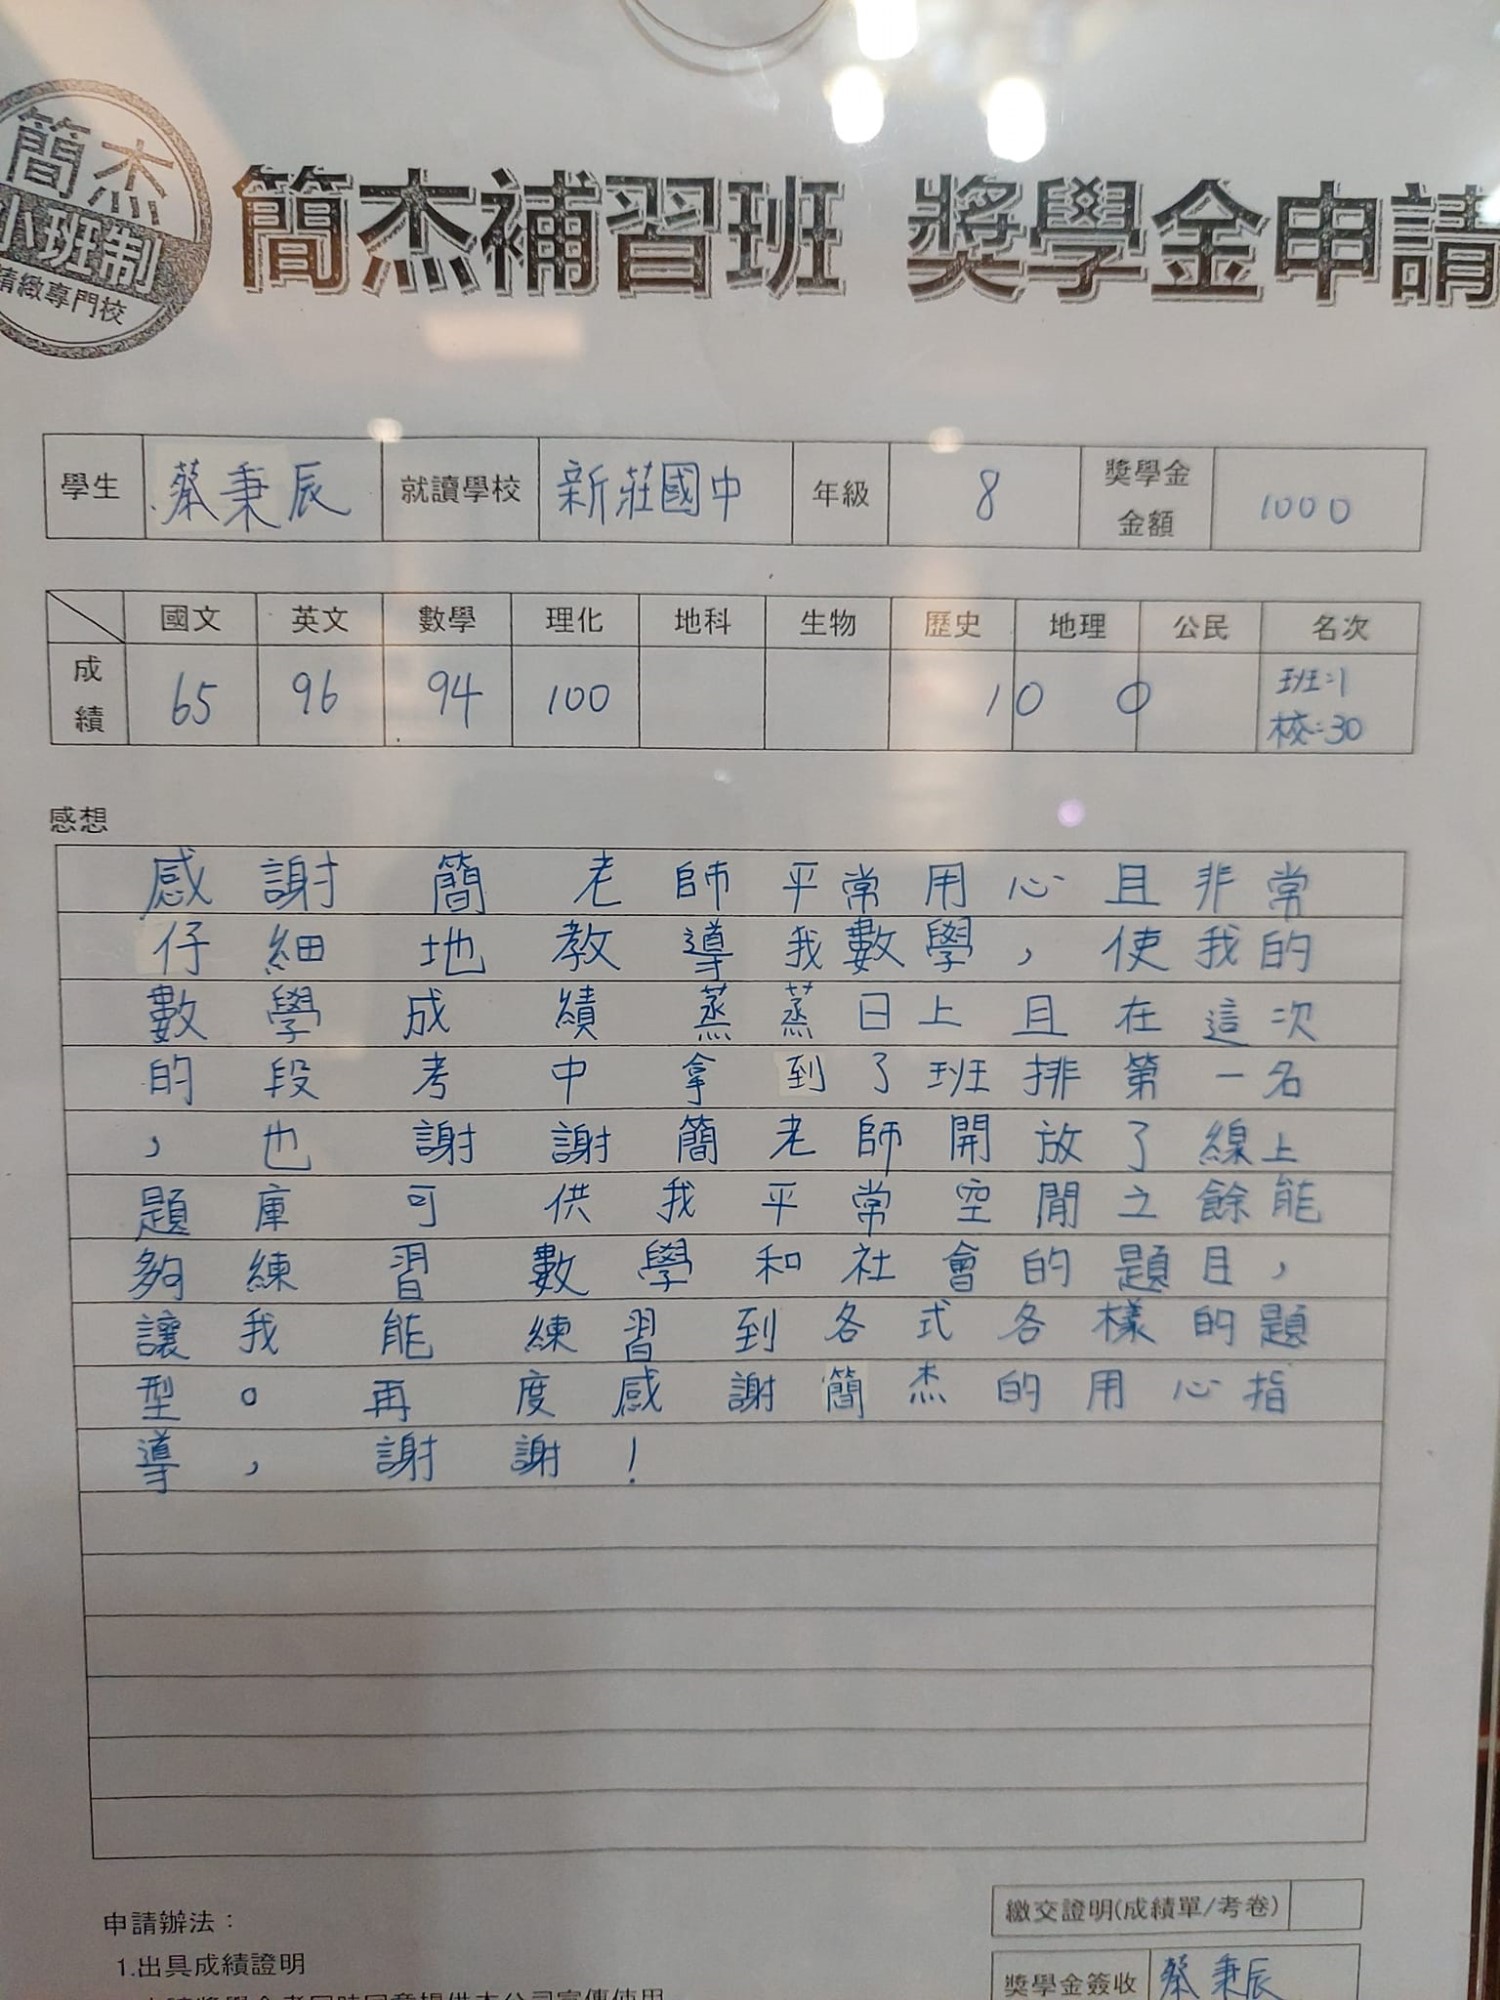 簡杰
小班制
精緻專門校
簡杰補習班 獎學金申請
學生 蔡秉辰 就讀學校 新莊國中 年級 8 獎學金金額 1000
國文 英文 數學 理化 地科 生物 歷史 地理 公民 名次
成績 65 96 94 100 100 班:1 校:30
感想
感謝簡老師平常用心且非常
仔細地教導我數學,使我的
數學成績蒸蒸日上且在這次
的段考中拿到了班排第一名
,也謝謝簡老師開放了線上
題庫可供我平常空閒之餘能
夠練習數學和社會的題目,
讓我能練習到各式各樣的題
型。再度感謝簡杰的用心指
導,謝謝!
繳交證明(成績單/考卷)
申請辦法:
1.出具成績證明
獎學金簽收 蔡秉辰